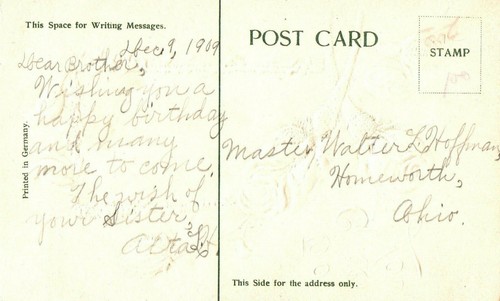 This Space for Writing Messages.
Dec 9, 1909
Dear Brother,
Wishing you a
happy birthday
and many
more to come.
The wish of
your Sister,
Printed in Germany.
POST CARD
STAMP
Master Walter L Hoffman,
Homeworth,
Ohio.
This Side for the address only.